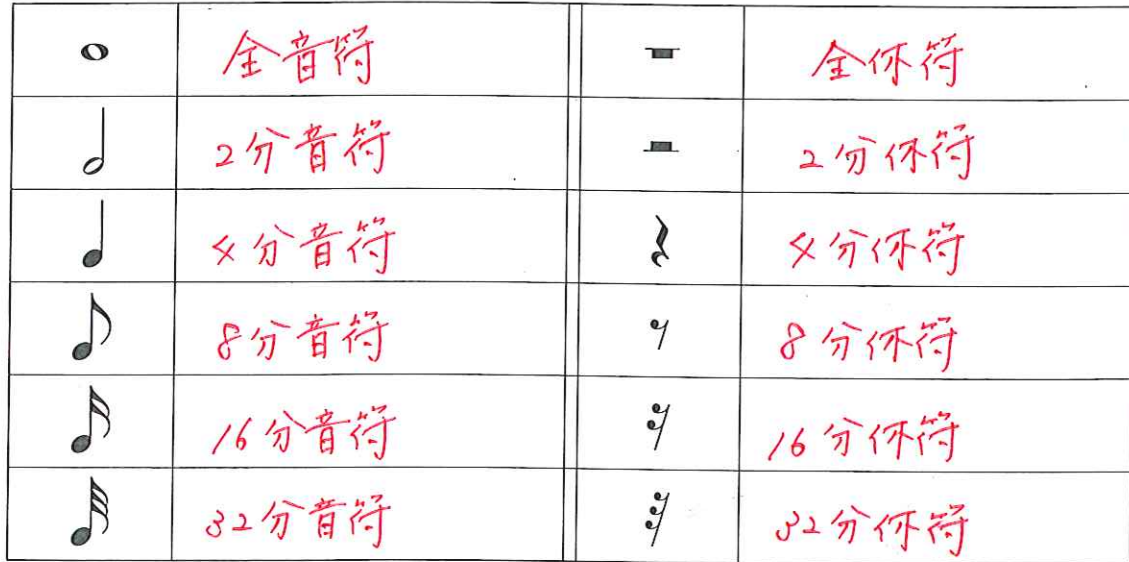 全音符 全休符
2分音符 2分休符
4分音符 4分休符
8分音符 8分休符
16分音符 16分休符
32分音符 32分休符